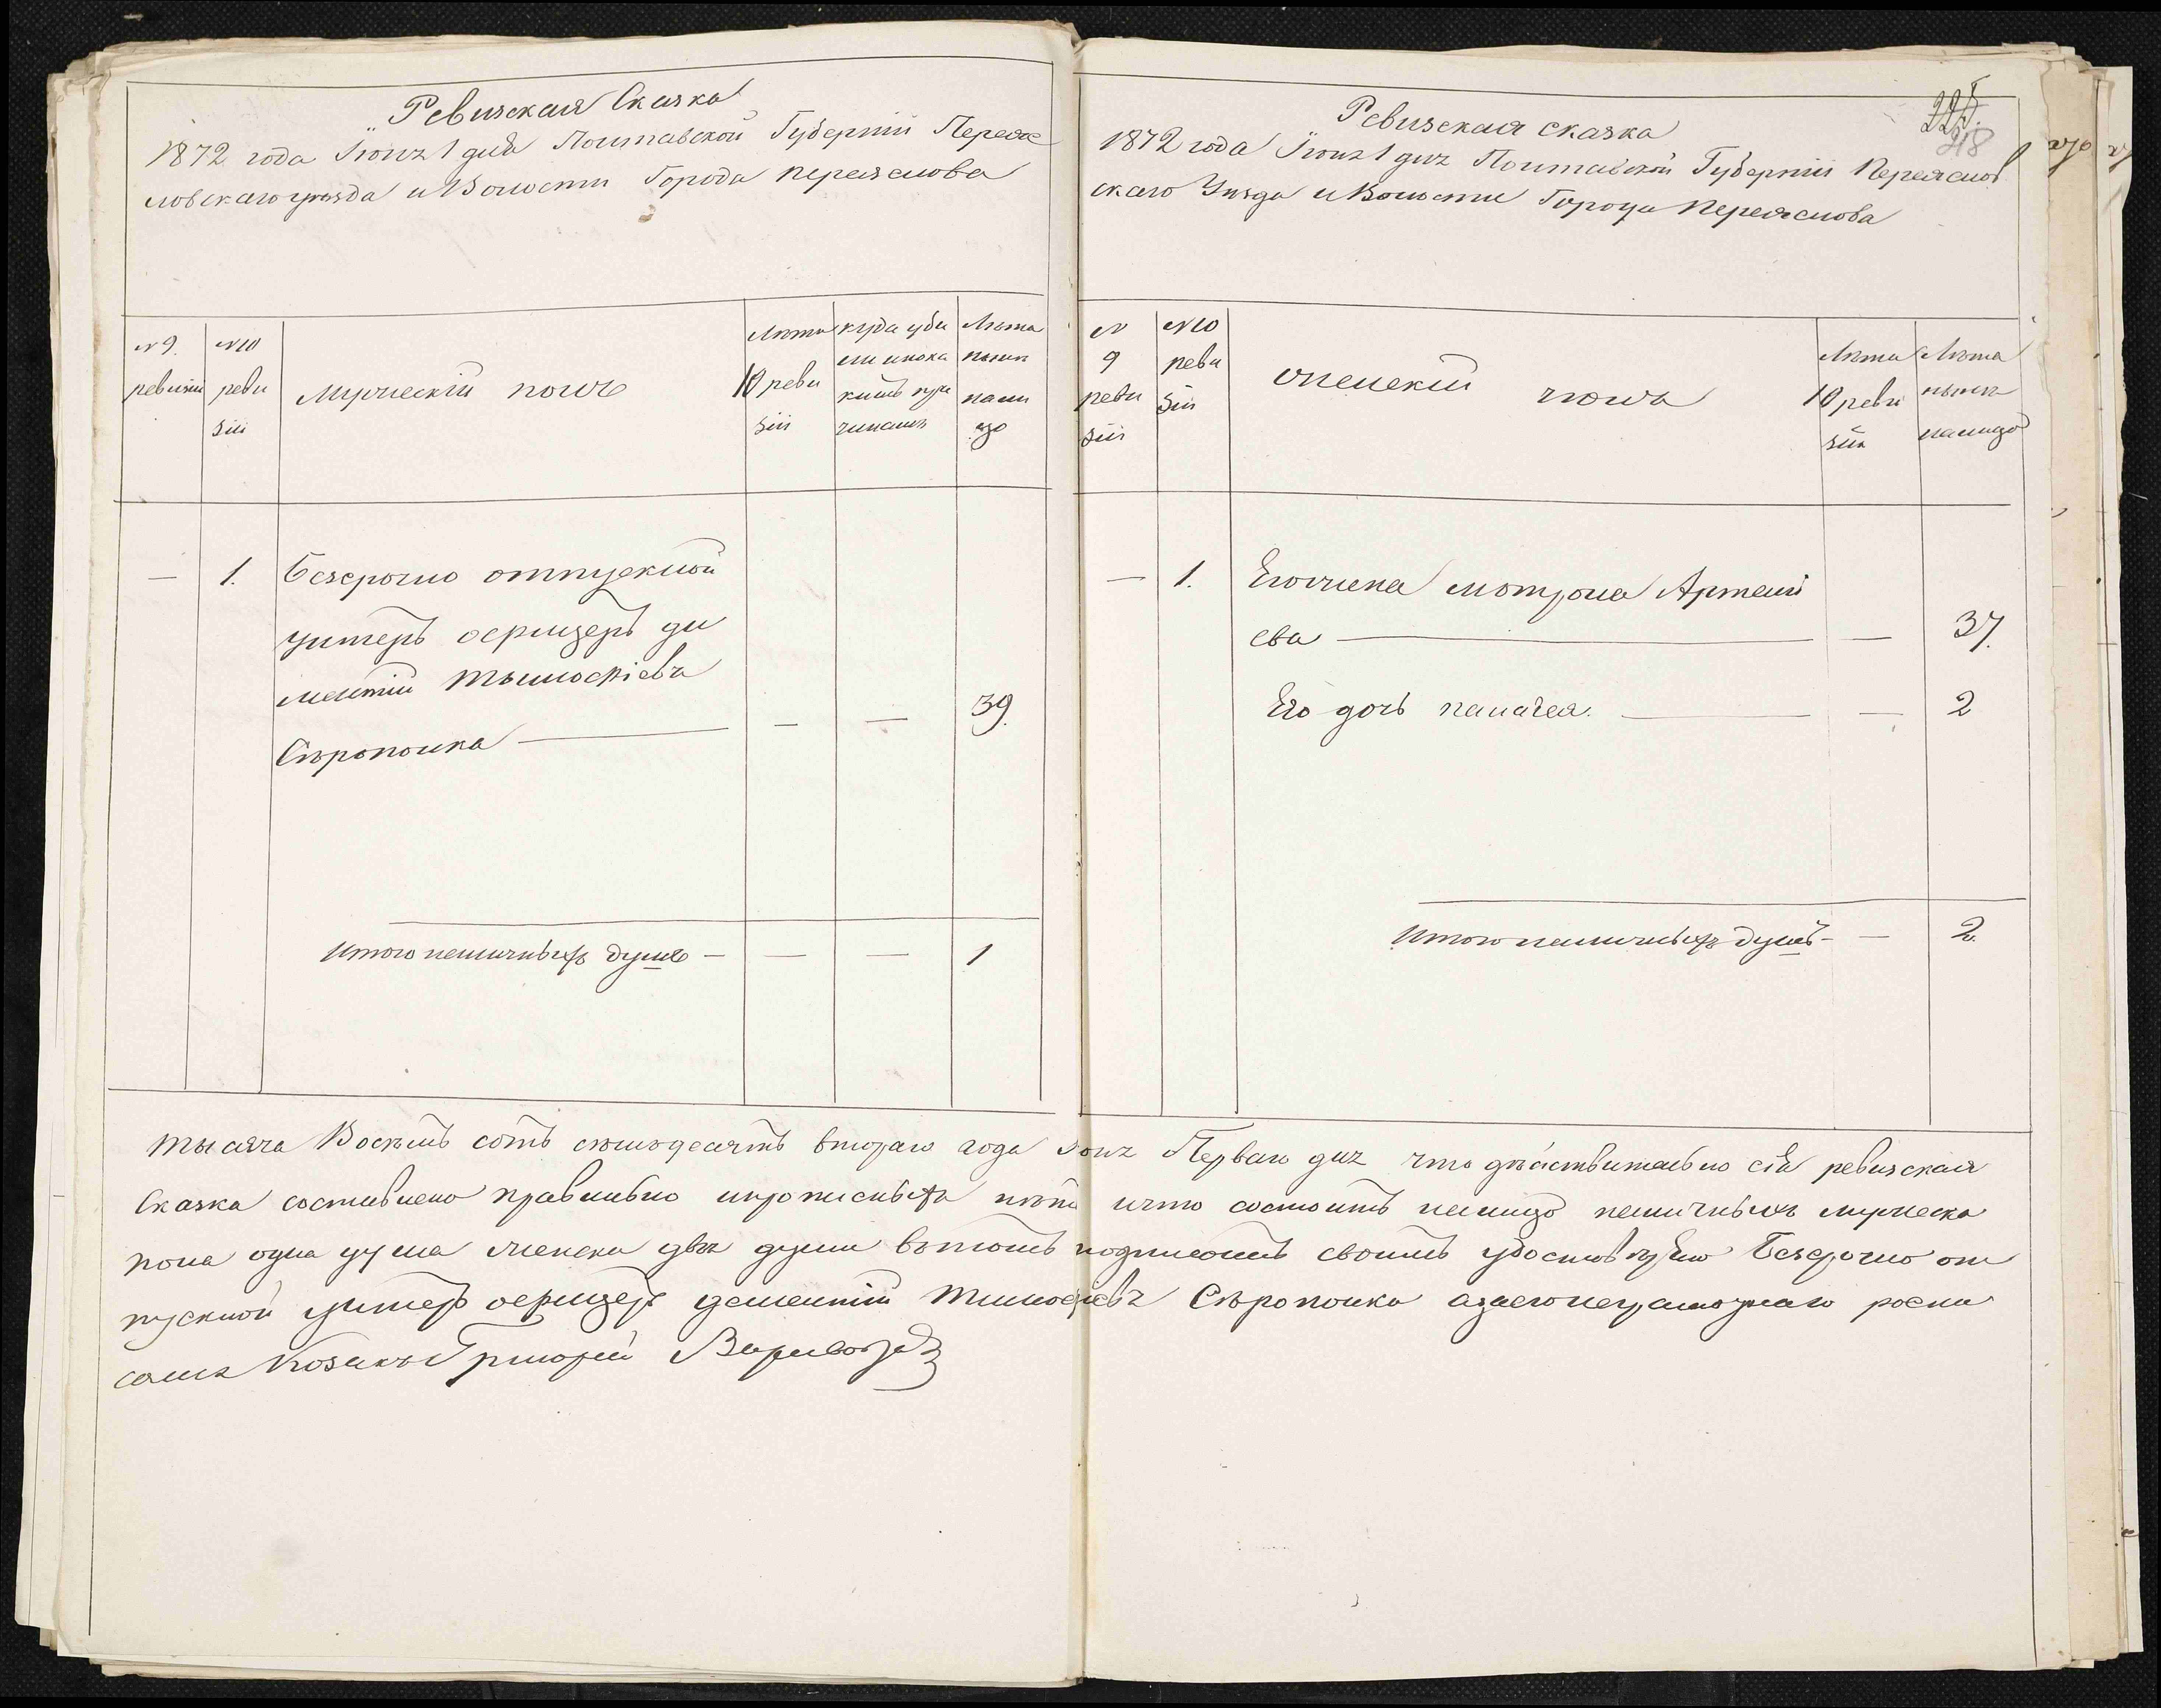 Ревизская Сказка
1872 года Іюнъ 1 дня Полтавской Губерніи Переяс
ловскаго уезда и Волости Города переяслова
№ 9. ревизіи
№ 10 реви зіи
Мужескій полъ
Лѣта 10 реви зіи
куда убы
Лѣта нынѣ нали цо
— 1. безсрочно отпускной
унтеръ осрицеръ ди
ментій тымосхіевъ
Сѣрополка — — — 39.
Итого наличныхъ душъ — — — 1
225.
218
Ревизская сказка
1872 года Іюнъ 1 днъ Полтавской Губерніи Переяслов
скаго Уѣзда и Волости Города переяслова
№ 9 реви зіи
№ 10 реви зіи
женскій полъ
Лѣта 10 реви зіи
Лѣта нынѣ налицо
— 1. Его жена мотрона Артемі
ева — — 37.
Его дочь палагея. — — 2
Итого наличныхъ душъ — — 2.
тысяча Восѣмъ сотъ сѣмъдесятъ втораго года Іюнъ Перваго днъ что дѣйствительно сія ревизская
Сказка составлено правильно и что состоитъ налицо наличныхъ мужеска
пола одна душа женска двѣ души вътомъ подписомъ своимъ Безсрочно от
пускной унтеръ осрицеръ дементій Тимосхіевъ Сѣрополка азаегонеграмотнаго роспи
салсъ Козакъ Григорій